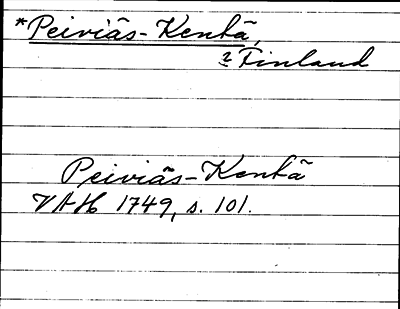 *Peiviäs-Kentä,
i Finland
Peiviäs-Kentä
VAH 1749, s. 101.